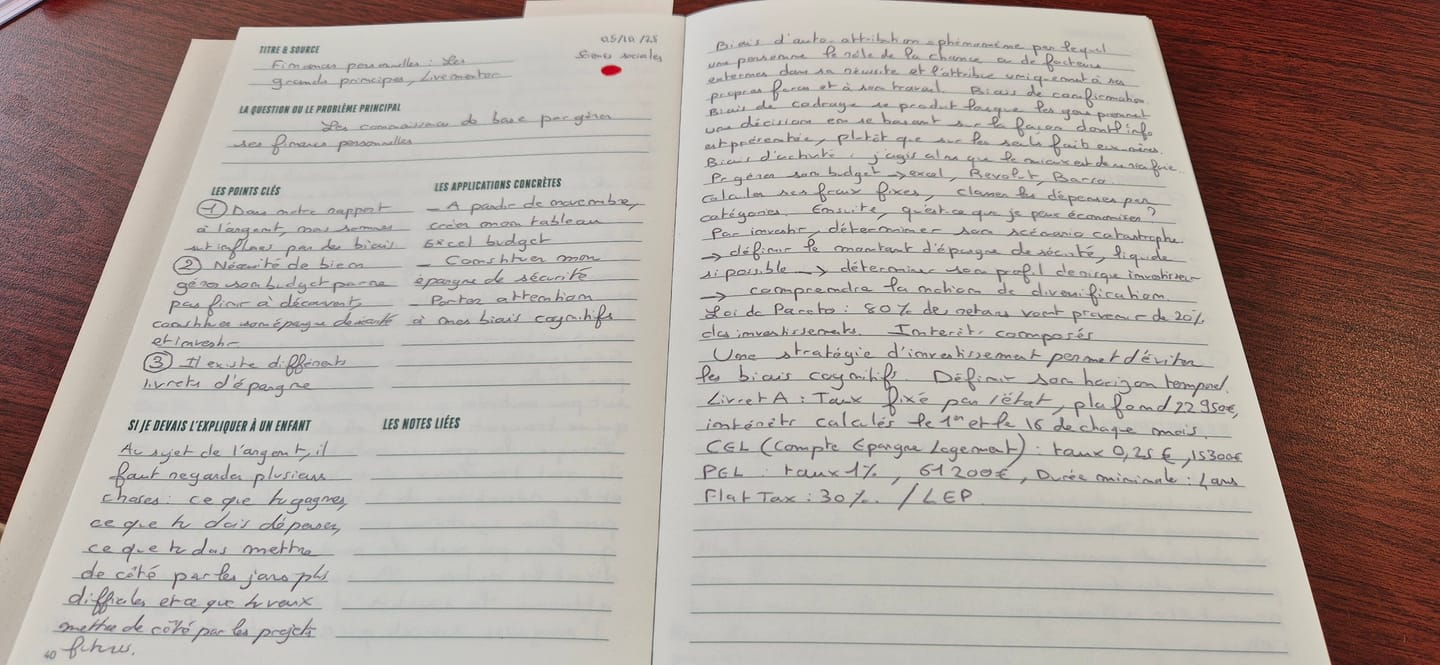 TITRE & SOURCE
Finances personnelles : Les
grands principes, Livementor
05/10/25
Sciences sociales
LA QUESTION OU LE PROBLÈME PRINCIPAL
Les connaissances de base pr gérer
ses finances personnelles
LES POINTS CLÉS
① Dans notre rapport
à l'argent, nous sommes
influés par des biais
② Nécessité de bien
gérer son budget pr ne
pas finir à découvert,
constituer son épargne de sécurité
et investir
③ Il existe différents
livrets d'épargne
LES APPLICATIONS CONCRÈTES
— A partir de novembre,
créer mon tableau
Excel budget
— Constituer mon
épargne de sécurité
— Porter attention
à mes biais cognitifs
SI JE DEVAIS L'EXPLIQUER À UN ENFANT
Au sujet de l'argent, il
faut regarder plusieurs
choses : ce que tu gagnes,
ce que tu dois dépenser,
ce que tu dois mettre
de côté pr les jours plus
difficiles et ce que tu veux
mettre de côté pr les projets
futurs.
LES NOTES LIÉES
40
Biais d'auto-attribution = phénomène par lequel
une personne le rôle de la chance ou de facteurs
externes dans sa réussite et l'attribue uniquement à ses
propres forces et à son travail. Biais de confirmation.
Biais de cadrage se produit lorsque les gens prennent
une décision en se basant sur la façon dont l'info
est présentée, plutôt que sur les seuls faits eux-mêmes.
Biais d'activité : j'agis alors que le mieux est de ne rien faire.
Pr gérer son budget → excel, Revolut, Barro
Calculer ses frais fixes, classer les dépenses par
catégories. Ensuite, qu'est-ce que je peux économiser ?
Pr investir, déterminer son scénario catastrophe
→ définir le montant d'épargne de sécurité, liquide
si possible → déterminer son profil de risque investisseur
→ comprendre la notion de diversification.
Loi de Pareto : 80 % des retours vont provenir de 20 %
des investissements. Intérêts composés
Une stratégie d'investissement permet d'éviter
les biais cognitifs. Définir son horizon temporel.
Livret A : Taux fixé par l'état, plafond 22 950€,
intérêts calculés le 1er et le 16 de chaque mois.
CEL (Compte Epargne Logement) : taux 0,25 €, 15300€
PEL : taux 1%, 61 200€, Durée minimale : 4 ans
Flat Tax : 30 %. / LEP